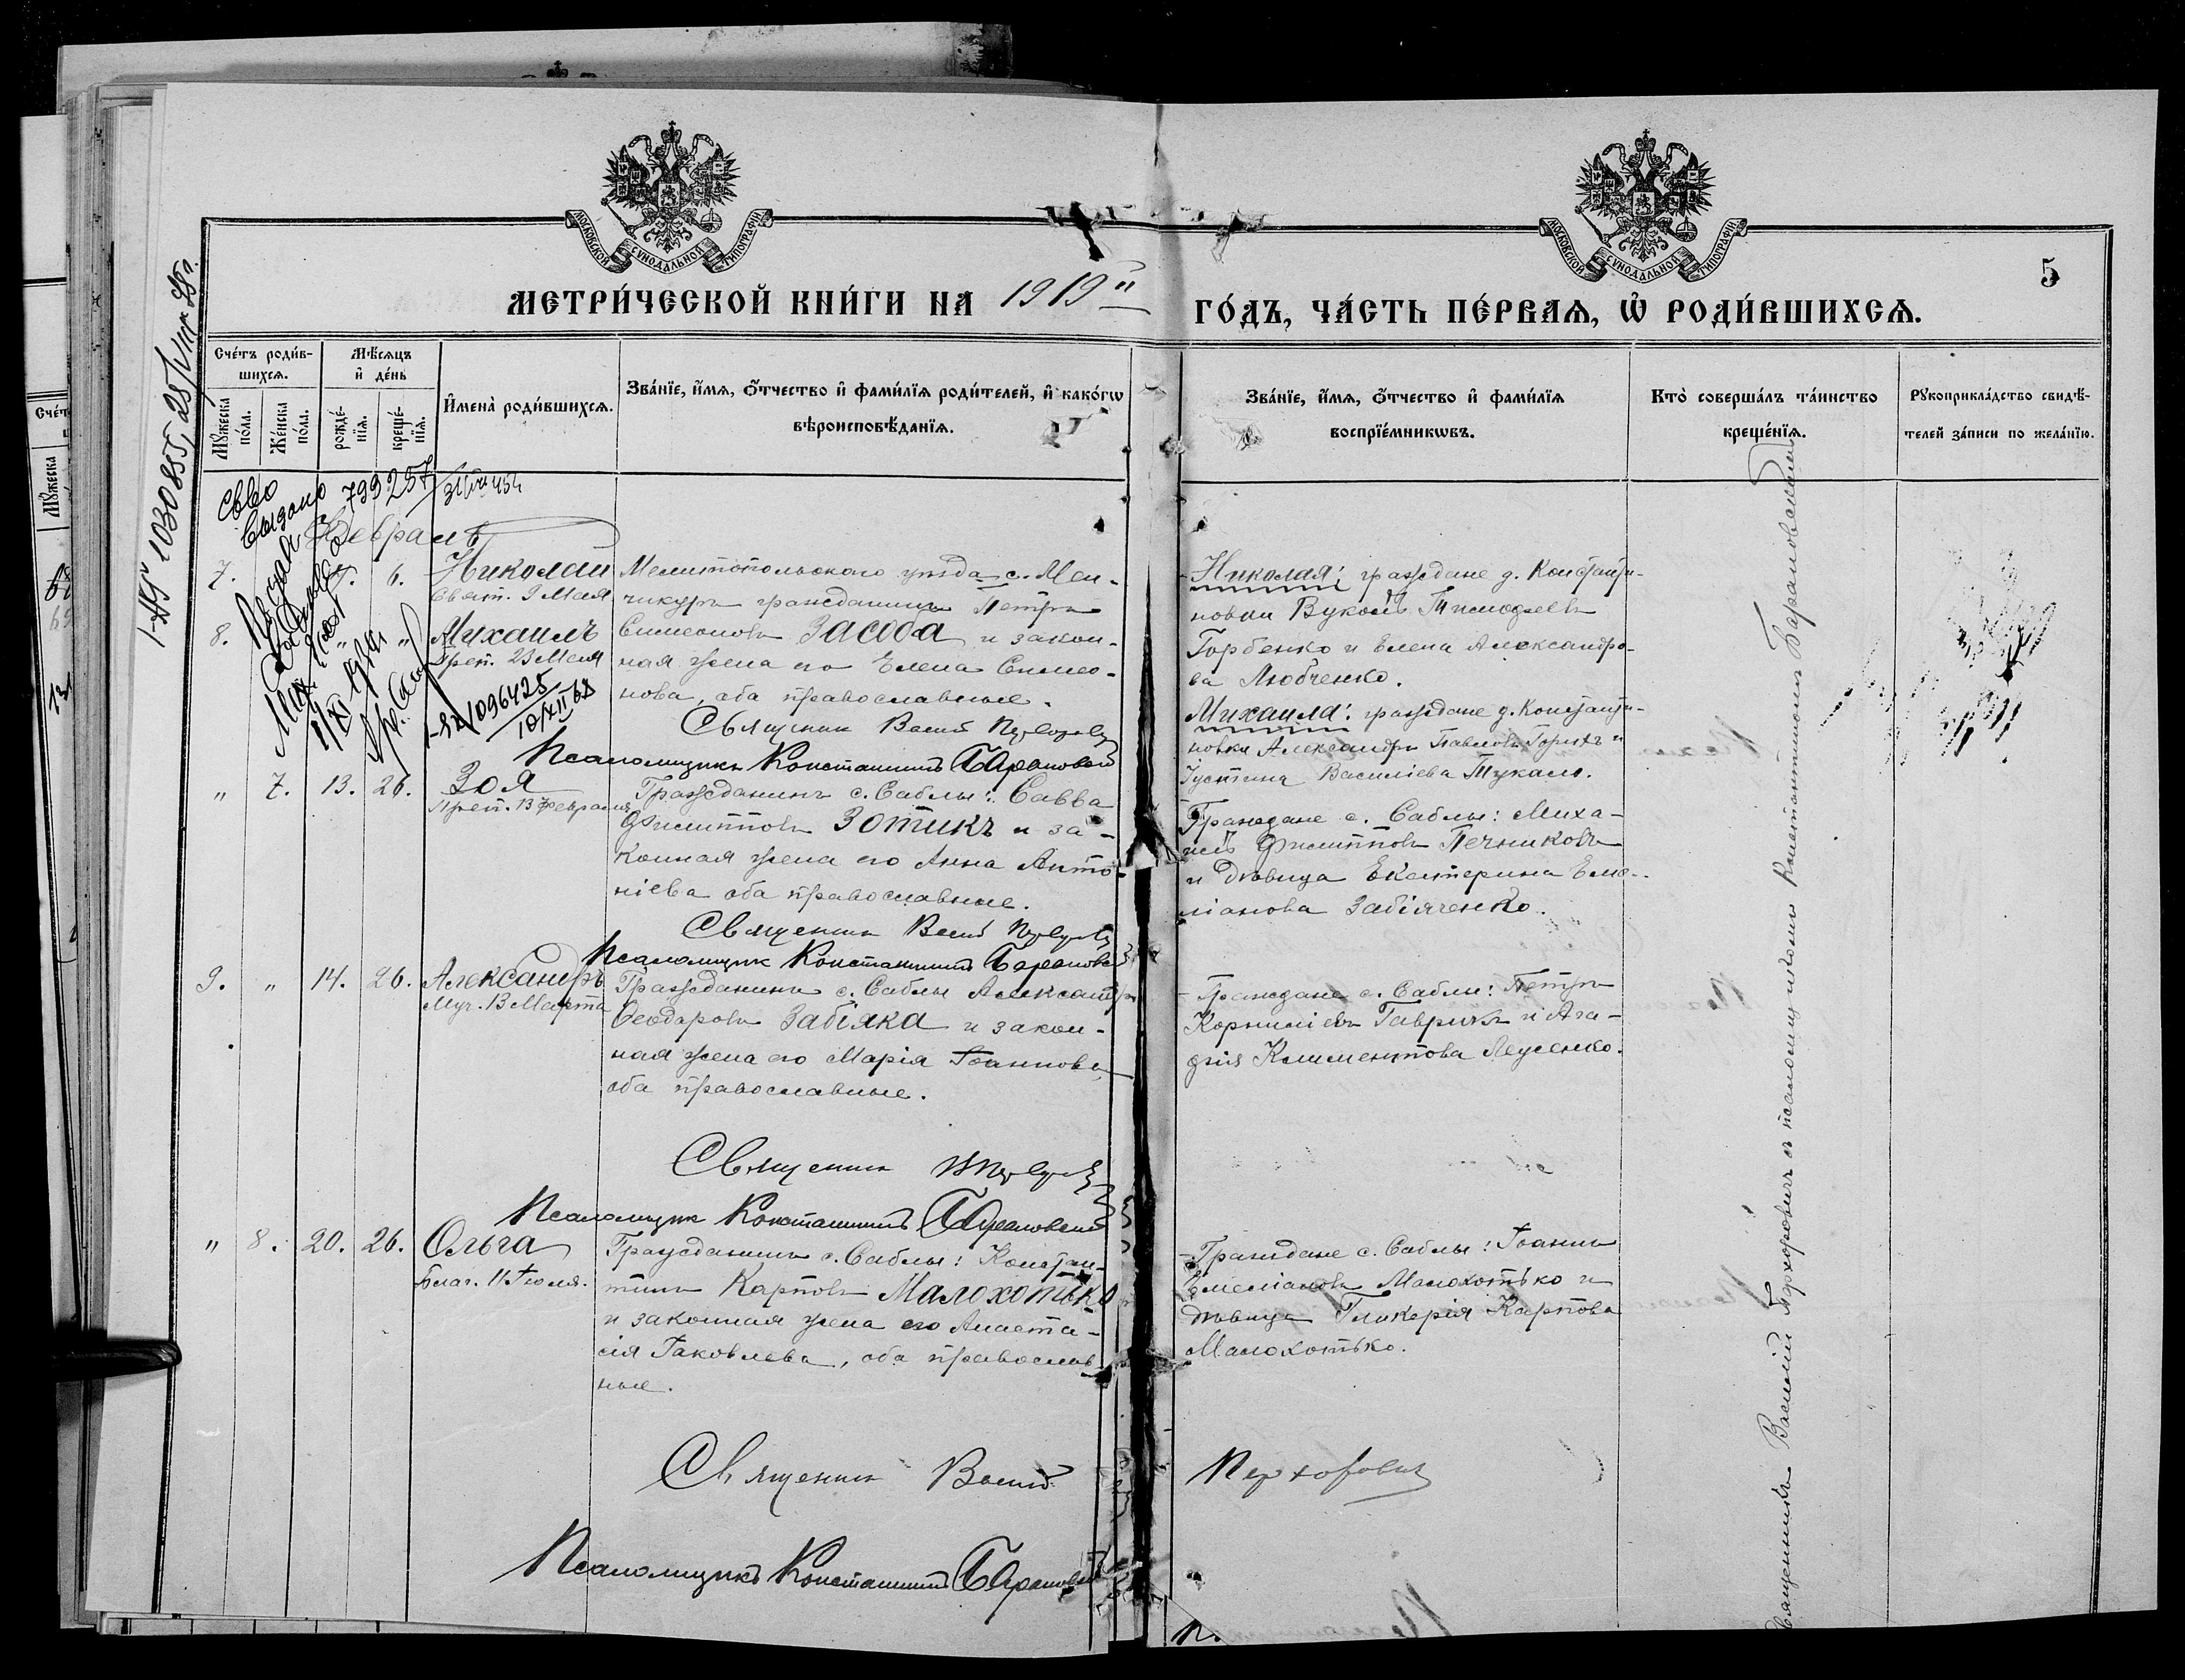 МОСКОВСКОЙ СУНОДАЛЬНОЙ ТИПОГРАФІИ
МОСКОВСКОЙ СУНОДАЛЬНОЙ ТИПОГРАФІИ
5
МЕТРИ́ЧЕСКОЙ КНИ́ГИ НА 1919й ГО́ДЪ, ЧА́СТЬ ПЕ́РВАѦ, Ѡ҆ РОДИ́ВШИХСѦ.
Сче́тъ роди́в-
шихсѧ.
Мꙋ́жеска по́ла.
Же́нска по́ла.
Мѣ́сѧцъ
и҆ де́нь
рожде́-
нїѧ.
креще́-
нїѧ.
И҆мена̀ роди́вшихсѧ.
Зва́нїе, и҆́мѧ, ѻ҆́тчество и҆ фами́лїѧ роди́телей, и҆ како́гѡ
вѣроисповѣ́данїѧ.
Зва́нїе, и҆́мѧ, ѻ҆́тчество и҆ фами́лїѧ
воспрїе́мникѡвъ.
Кто̀ соверша́лъ та́инство
креще́нїѧ.
Рꙋкоприкла́дство свидѣ́-
телей за́писи по жела́нїю.
Февраль
7. 6. Николай
Свят. 9 Мая
8. " " Михаилъ
Преп. 23 Мая
Мелитопольскаго уѣзда с. Мен-
чикуръ гражданинъ Петръ
Симеоновъ Засоба и закон-
ная жена его Елена Симео-
нова, оба православные.
Священник Васил
Псаломщикъ Константинъ Барановский
Николая: граждане д. Константи-
новки Вуколъ Тимофеевъ
Горбенко и Елена Александро-
ва Любченко.
Михаила: граждане д. Константи-
новки Александръ Павловъ и
Іустина Василіева
" 7. 13. 26. Зоя
Преп. 13 Февраля
Гражданинъ с. Саблы: Савва
Филипповъ Зотикъ и за-
конная жена его Анна Анто-
ніева оба православные.
Священник Васил
Псаломщик Константинъ Барановский
Граждане с. Саблы: Миха-
илъ Филипповъ Печниковъ
и дѣвица Екатерина Еме-
ліанова Забіяченко.
9. " 14. 26. Александръ
Муч. 13 Марта
Гражданинъ с. Саблы Александръ
Ѳеодоровъ Забіяка и закон-
ная жена его Марія Іоаннова
оба православные.
Священник
Псаломщик Константинъ Барановский
Граждане с. Саблы: Петръ
Корниліевъ Гаврикъ и Ага-
фія Климентова Леусенко.
" 8. 20. 26. Ольга
Благ. 11 Іюля.
Гражданинъ с. Саблы: Констан-
тинъ Карповъ Малохотько
и законная жена его Анаста-
сія Іаковлева, оба православ-
ные.
Граждане с. Саблы: Іоаннъ
Емеліановъ Малохотько и
дѣвица Гликерія Карпова
Малохотько.
Священник Васил Перхорович
Псаломщикъ Константинъ Барановский
Священникъ Василій Перхоровичъ съ псаломщикомъ Константиномъ Барановскимъ